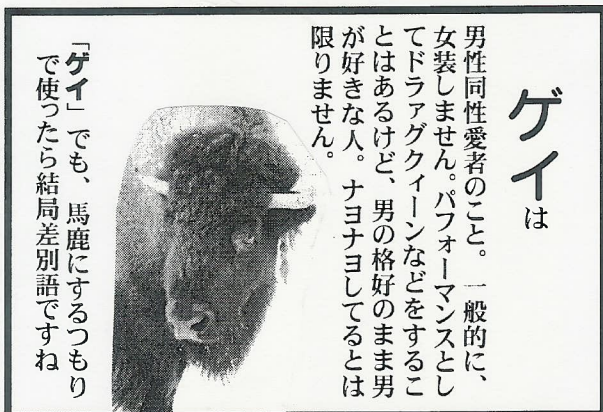 ゲイは
男性同性愛者のこと。一般的に、
女装しません。パフォーマンスとし
てドラァグクィーンなどをするこ
とはあるけど、男の格好のまま男
が好きな人。ナヨナヨしてるとは
限りません。
「ゲイ」でも、馬鹿にするつもり
で使ったら結局差別語ですね